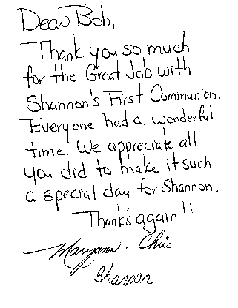 Dear Bob,
Thank you so much
for the Great Job with
Shannon's First Communion.
Everyone had a wonderful
time. We appreciate all
you did to make it such
a special day for Shannon.
Thanks again!!
Maryanne, Chic
Shannon